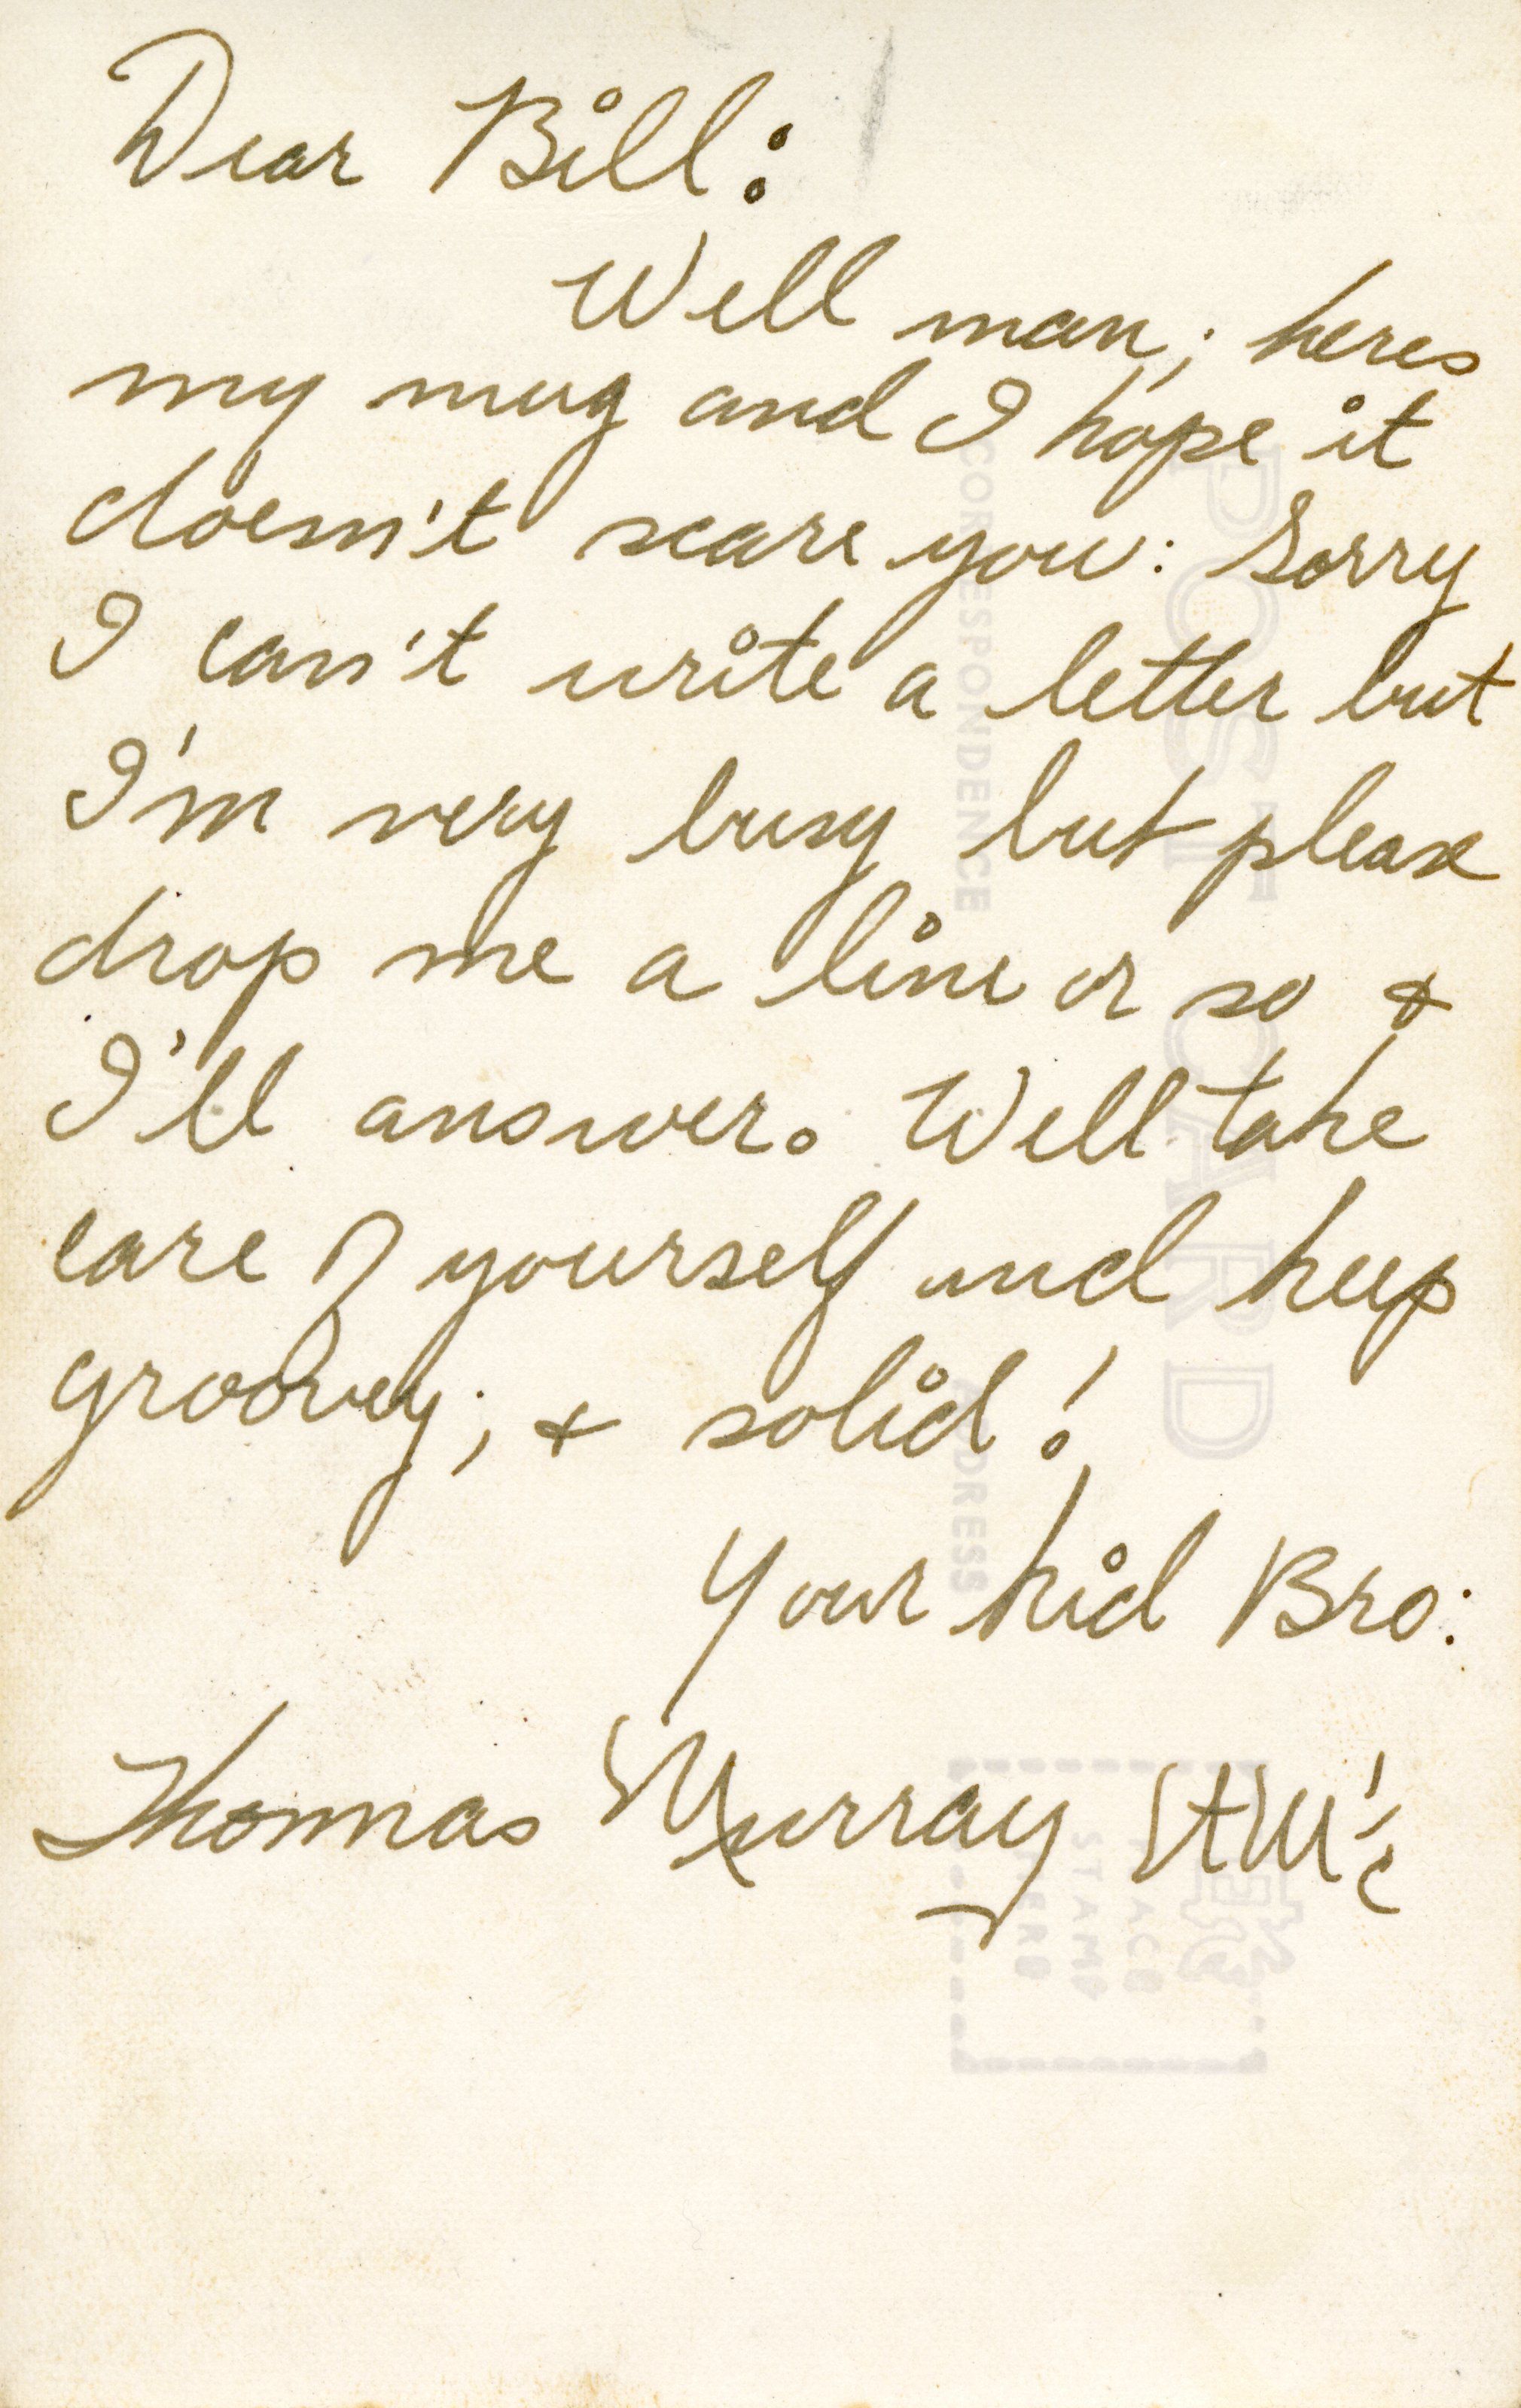 Dear Bill:
Well man; heres
my mug and I hope it
doesn't scare you: Sorry
I can't write a letter but
I'm very busy but please
drop me a line or so &
I'll answer. Well take
care of yourself and keep
groovey; & solid!
Your kid Bro:
Thomas Murray
POST CARD
CORRESPONDENCE
ADDRESS
PLACE
STAMP
HERE